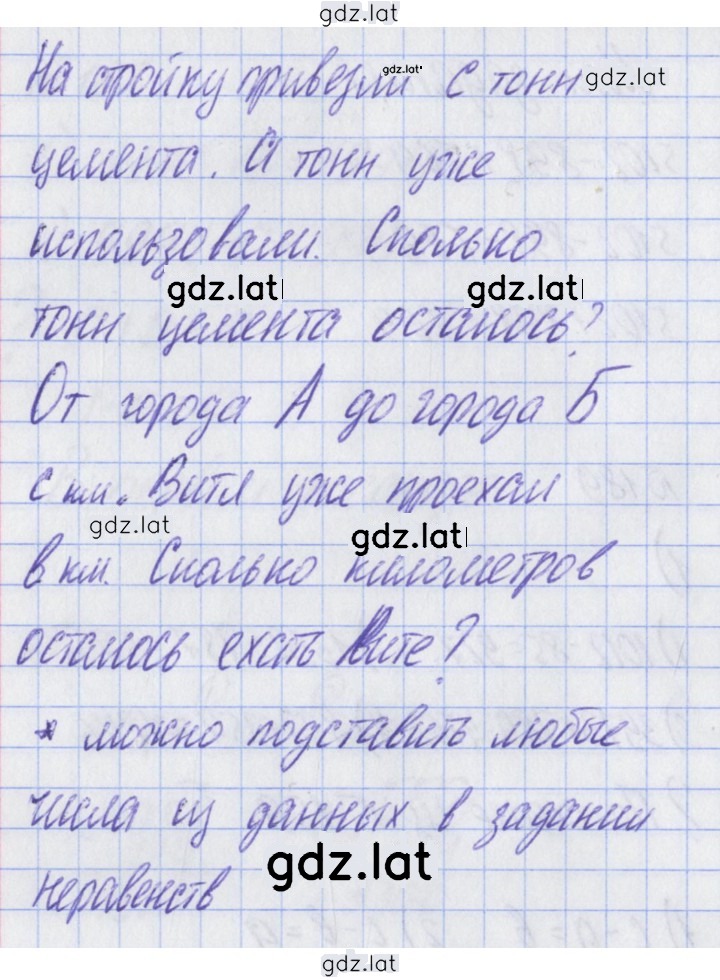 gdz.lat
На стройку привезли с тонн
gdz.lat
gdz.lat
цемента. а тонн уже
использовали. Сколько
gdz.lat
gdz.lat
тонн цемента осталось?
От города А до города Б
с км. Витя уже проехал
gdz.lat
gdz.lat
в км. Сколько километров
осталось ехать Вите?
* можно подставить любые
числа из данных в задании
gdz.lat
неравенств
gdz.lat